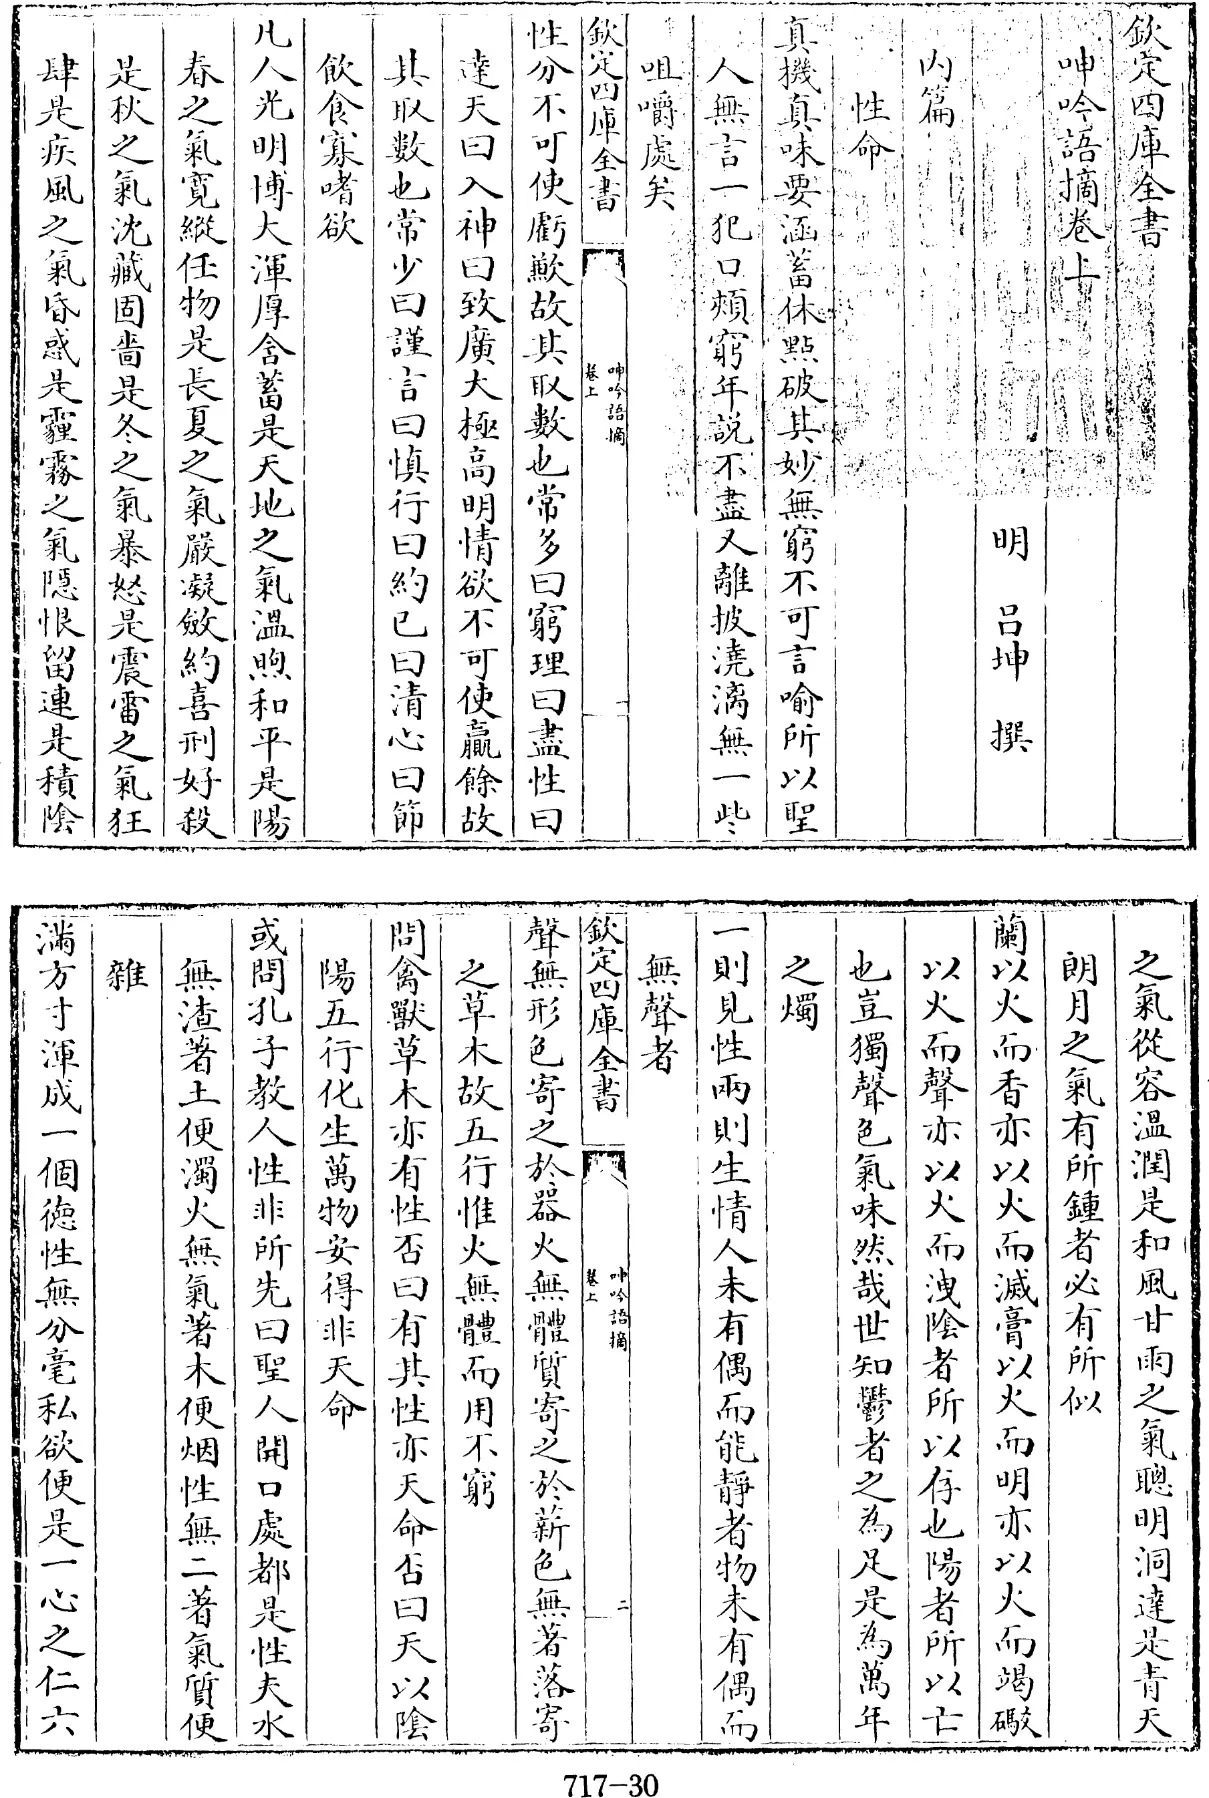 欽定四庫全書
呻吟語摘卷上
明　呂坤　撰
內篇
性命
真機真味要涵蓄休點破其妙無窮不可言喻所以聖
人無言一犯口頰窮年説不盡又離披澆漓無一些
咀嚼處矣
欽定四庫全書
呻吟語摘
卷上
一
性分不可使虧歉故其取數也常多曰窮理曰盡性曰
達天曰入神曰致廣大極高明情欲不可使贏餘故
其取數也常少曰謹言曰慎行曰約已曰清心曰節
飲食寡嗜欲
凡人光明博大渾厚含蓄是天地之氣溫煦和平是陽
春之氣寛縱任物是長夏之氣嚴凝斂約喜刑好殺
是秋之氣沈藏固嗇是冬之氣暴怒是震雷之氣狂
肆是疾風之氣昏惑是霾霧之氣隱恨留連是積陰
之氣從容溫潤是和風甘雨之氣聰明洞達是青天
朗月之氣有所鍾者必有所似
蘭以火而香亦以火而滅膏以火而明亦以火而竭礮
以火而聲亦以火而洩陰者所以存也陽者所以亡
也豈獨聲色氣味然哉世知鬱者之為足是為萬年
之燭
一則見性兩則生情人未有偶而能靜者物未有偶而
無聲者
欽定四庫全書
呻吟語摘
卷上
二
聲無形色寄之於器火無體質寄之於薪色無著落寄
之草木故五行惟火無體而用不窮
問禽獸草木亦有性否曰有其性亦天命否曰天以陰
陽五行化生萬物安得非天命
或問孔子教人性非所先曰聖人開口處都是性夫水
無渣著土便濁火無氣著木便烟性無二著氣質便
雜
滿方寸渾成一個德性無分毫私欲便是一心之仁六
717-30